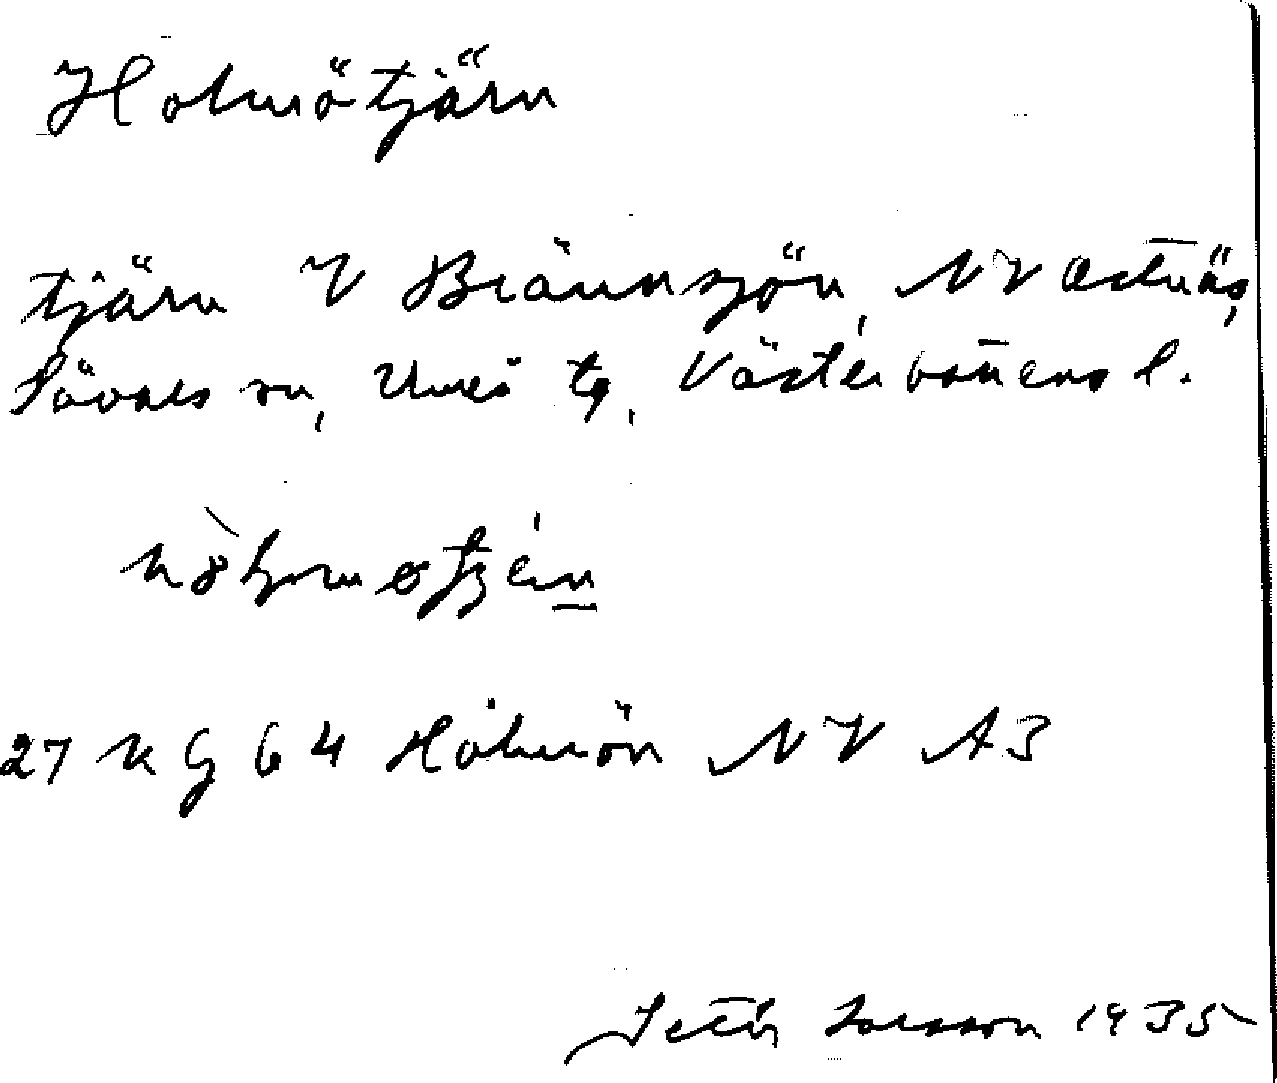 Holmötjärn
tjärn V Brännsjön, NV Ostnäs,
Sävars sn, Umeå tg, Västerbottens l.
27 K G 64 Holmön NV A3
Larsson 1935